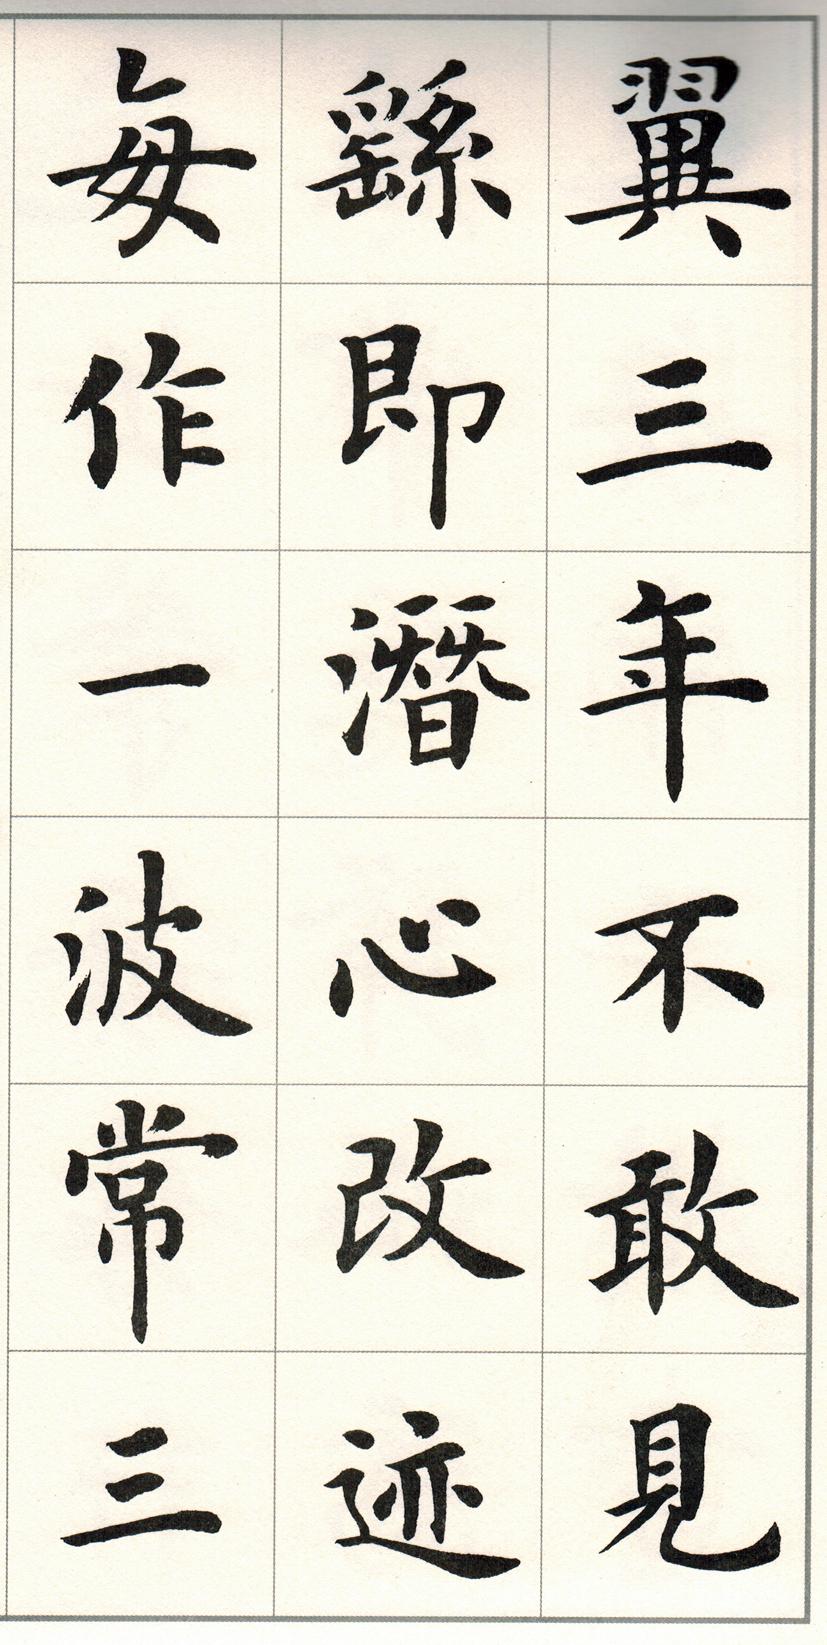 翼三年不敢見
繇即潛心改迹
每作一波常三